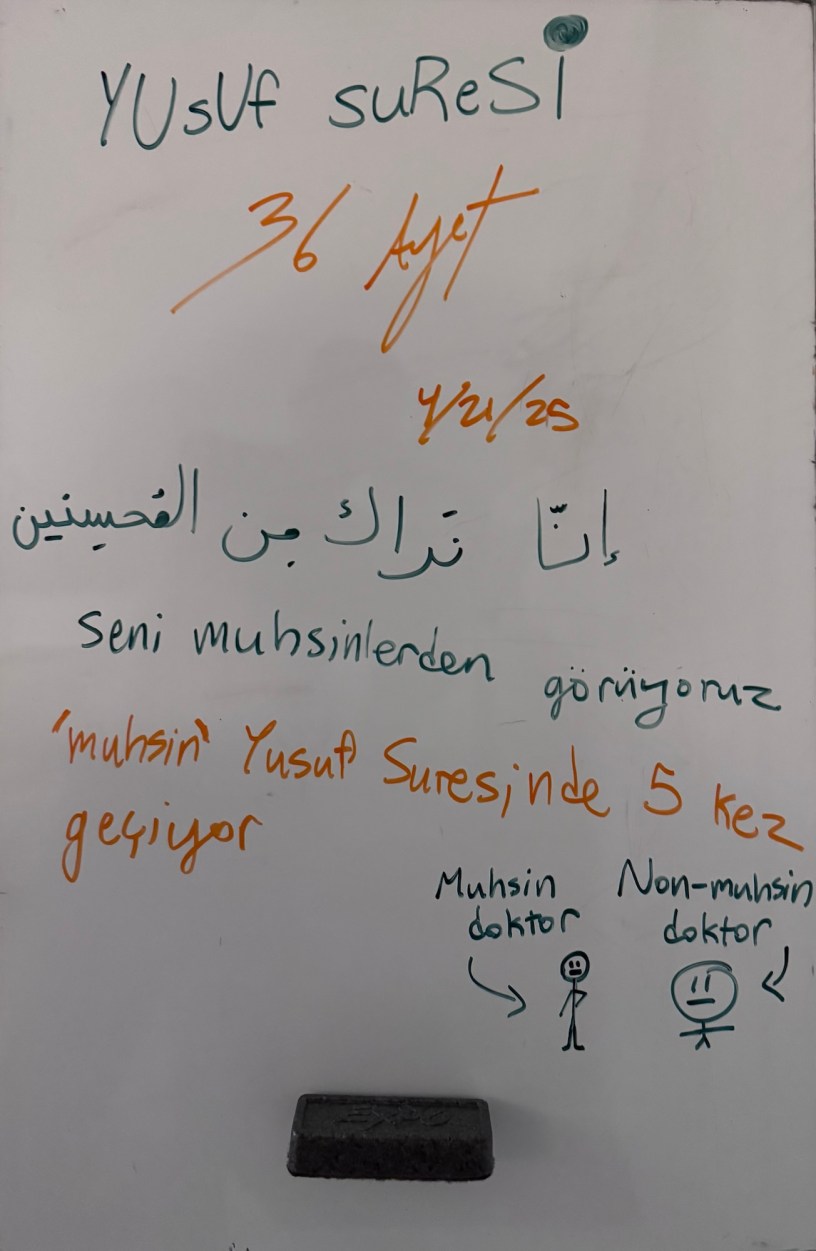 YUsUf suReSİ
36 Ayet
4/21/25
إنّا نَراك مِن المُحسِنين
seni muhsinlerden görüyoruz
"muhsin" Yusuf Suresinde 5 kez
geçiyor
Muhsin
doktor
Non-muhsin
doktor
EXPO